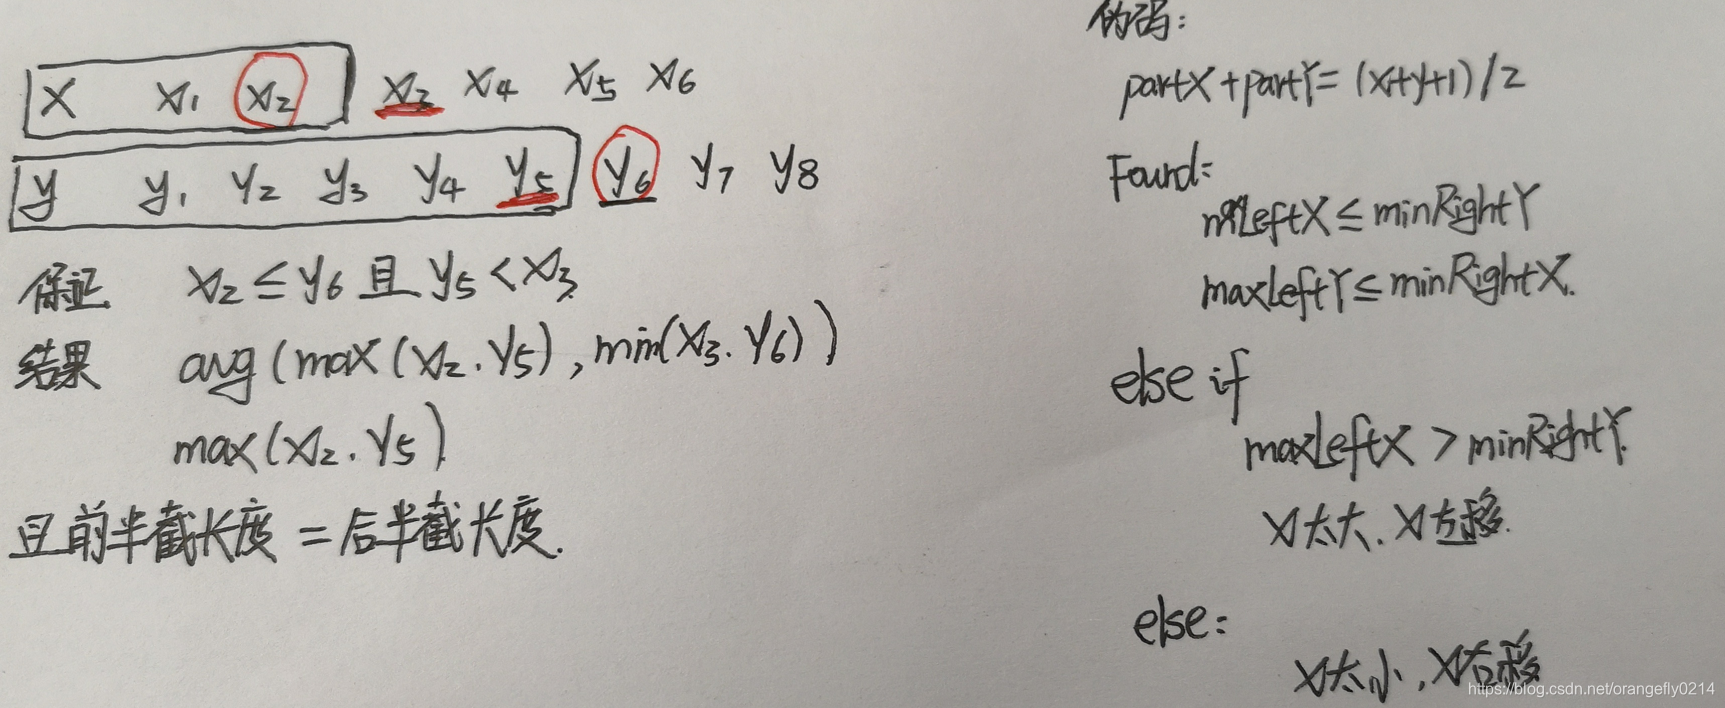 X x1 x2 x3 x4 x5 x6
y y1 y2 y3 y4 y5 y6 y7 y8
保证 x2 ≤ y6 且 y5 < x3
结果 avg(max(x2.y5), min(x3.y6))
max(x2.y5)
且前半截长度 = 后半截长度.
伪码:
partX + partY = (x+y+1)/2
Found:
maxLeftX ≤ minRightY
maxLeftY ≤ minRightX.
else if
maxLeftX > minRightY.
x太大. x左移.
else:
x太小, x右移
https://blog.csdn.net/orangefly0214